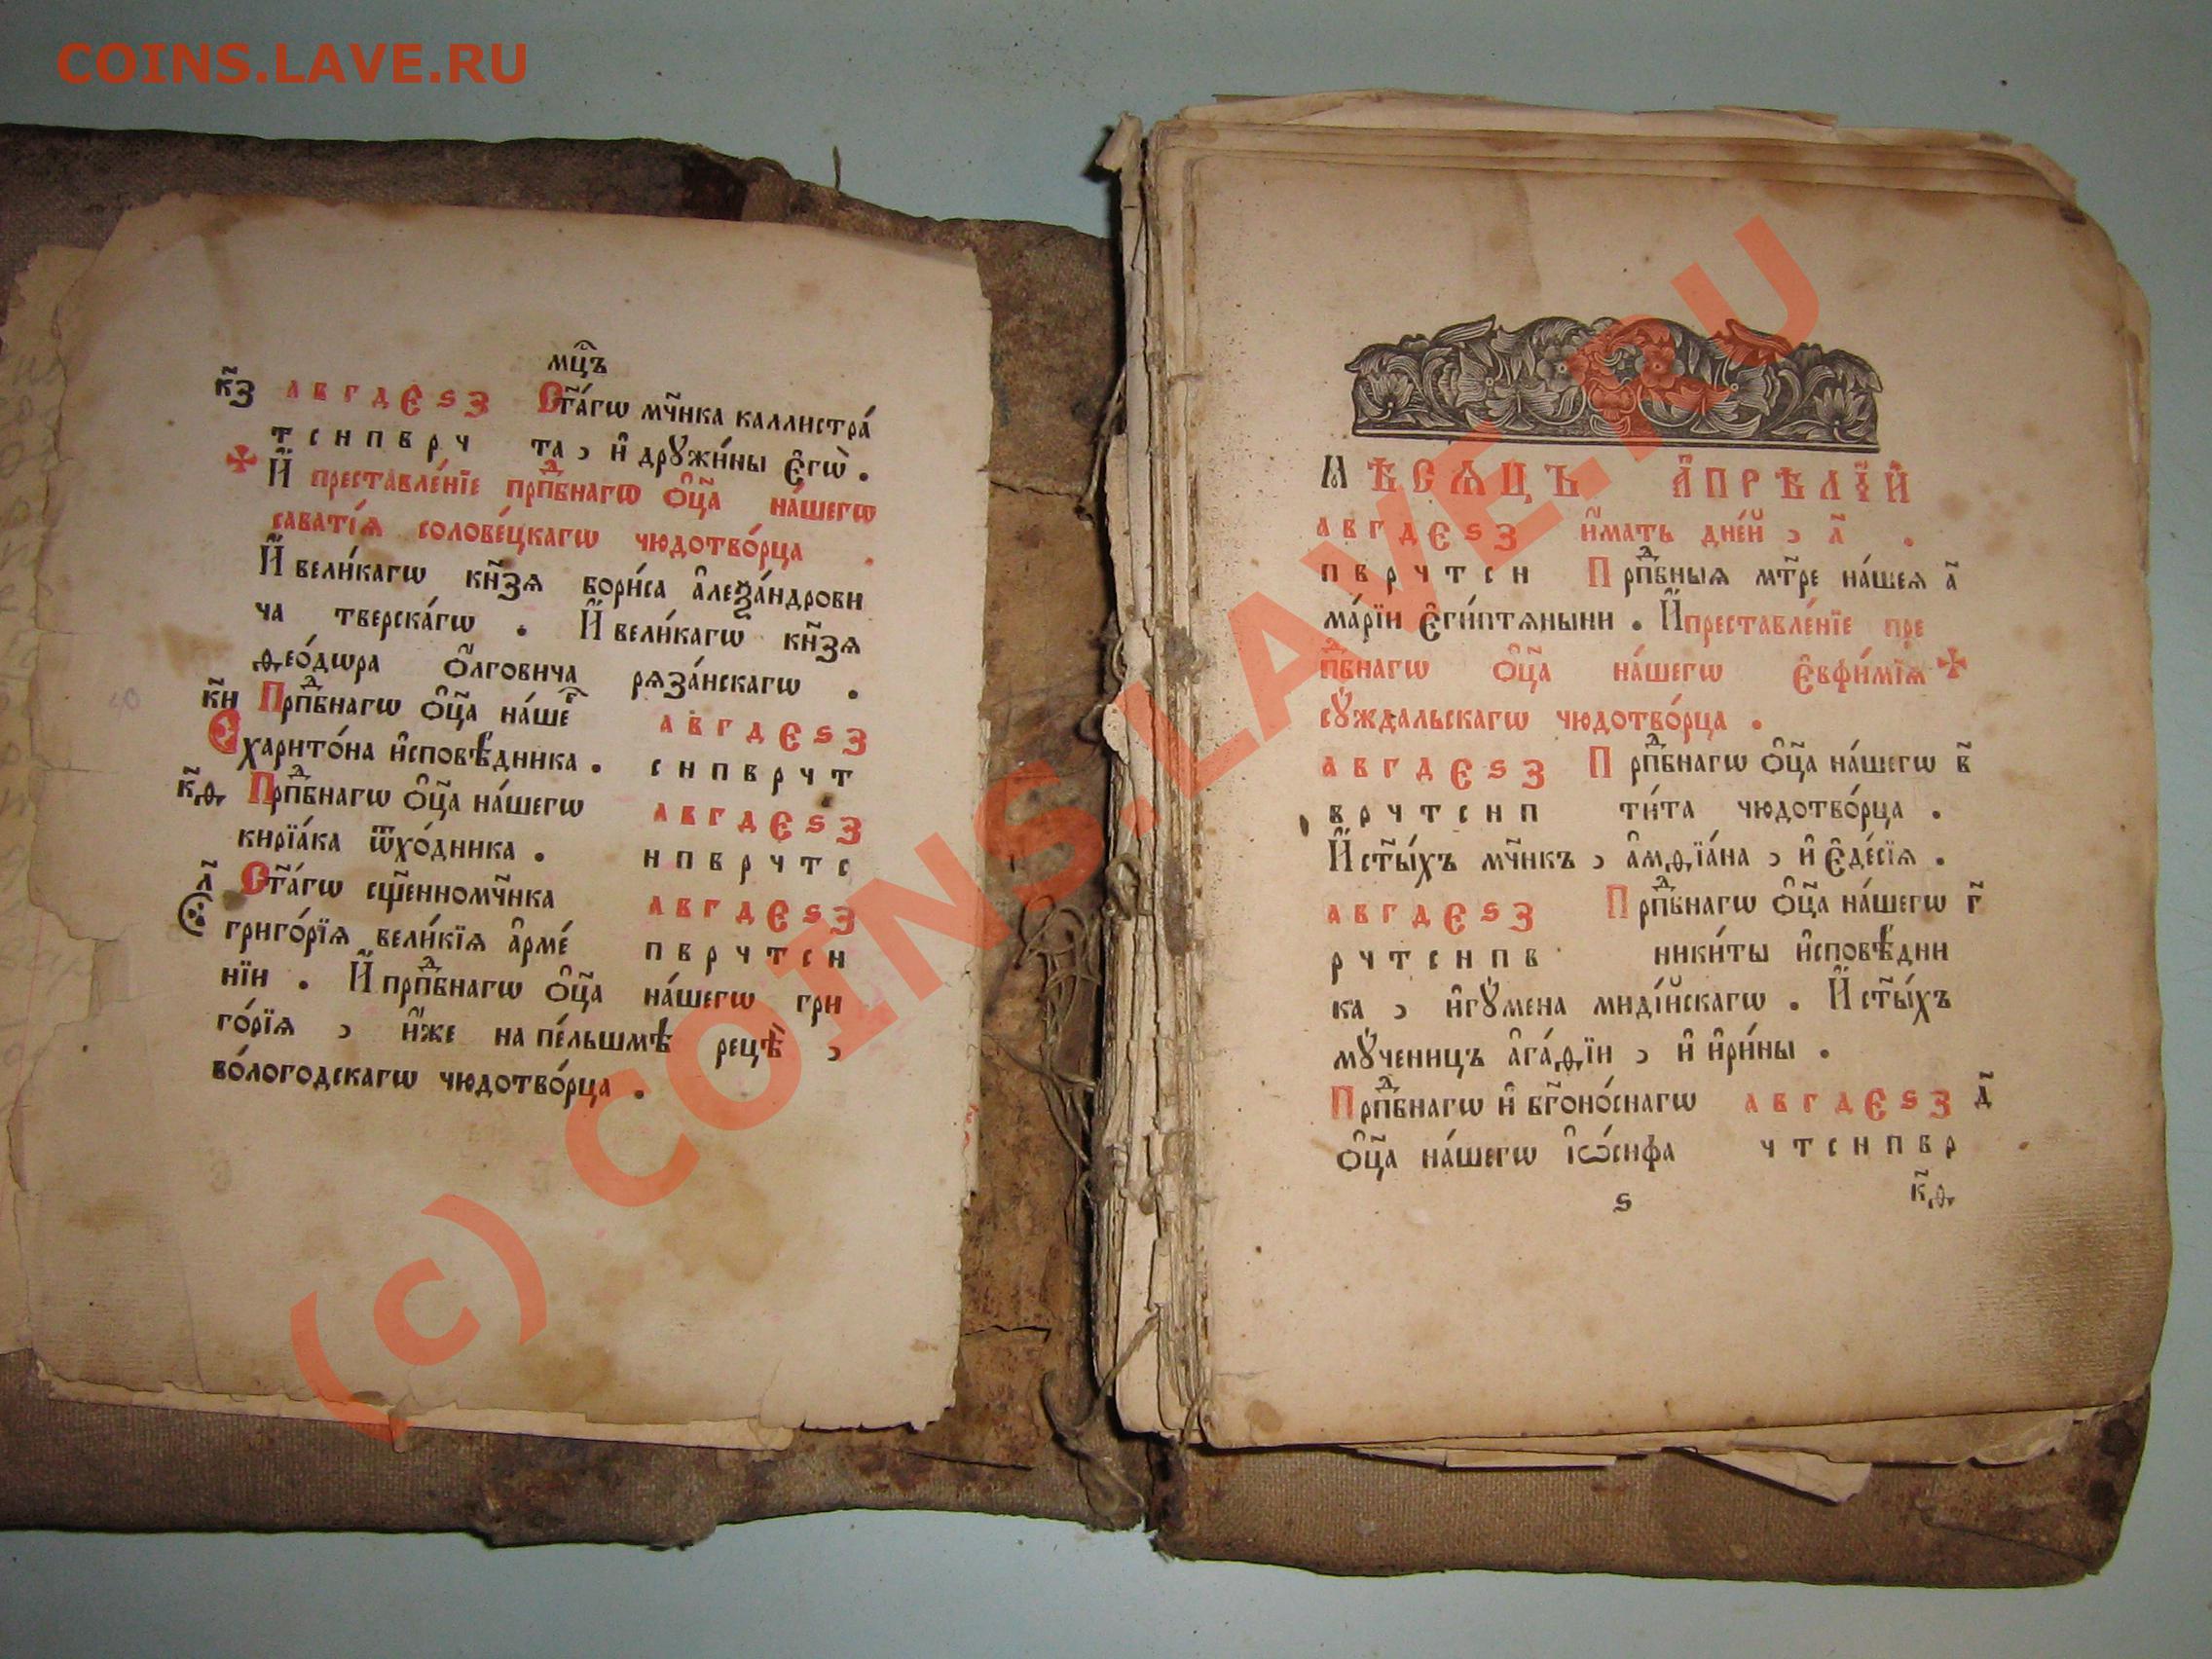 COINS.LAVE.RU
мцⷭ҇ъ
к҃з а в г д є ѕ з Ст҃а́гѡ мч҃нка каллистра́
т с н п в р ч та , и҆ дрꙋжи́ны є҆гѡ̀ .
И҆ преставле́нїе прпⷣбнагѡ ѻ҆ц҃а на́шегѡ
саваті́ѧ солове́цкагѡ чюдотво́рца .
И҆ вели́кагѡ кн҃зѧ бори́са а҆леѯа́ндрови
ча тверска́гѡ . И҆ вели́кагѡ кн҃зѧ
ѳео́дѡра ѻ҆́лговича рѧза́нскагѡ .
к҃и Прпⷣбнагѡ ѻ҆ц҃а на́шеⷢ҇ а в г д є ѕ з
харито́на и҆сповѣ́дника . с н п в р ч т
к҃ѳ Прпⷣбнагѡ ѻ҆ц҃а на́шегѡ а в г д є ѕ з
кирїа́ка ѿхо́дника . н п в р ч т с
л҃ Ст҃а́гѡ сщ҃енномч҃нка а в г д є ѕ з
григо́рїѧ вели́кїѧ а҆рме́ п в р ч т с н
нїи . И҆ прпⷣбнагѡ ѻ҆ц҃а на́шегѡ гри
го́рїѧ , и҆́же на пе́льшмѣ рецѣ̀ ,
во́логодскагѡ чюдотво́рца .
Мѣсѧцъ а҆прѣ́лїй
а в г д є ѕ з и҆́мать дне́й , л҃ .
п в р ч т с н Прпⷣбныѧ мт҃ре на́шеѧ а҃
марі́и є҆ги́птѧныни . И҆ преставле́нїе пре
пⷣбнагѡ ѻ҆ц҃а на́шегѡ є҆вфи́мїѧ
сꙋ́ждальскагѡ чюдотво́рца .
а в г д є ѕ з Прпⷣбнагѡ ѻ҆ц҃а на́шегѡ в҃
в р ч т с н п ти́та чюдотво́рца .
И҆ ст҃ы́хъ мч҃нкъ , а҆мѳїа́на , и҆ є҆де́сїѧ .
а в г д є ѕ з Прпⷣбнагѡ ѻ҆ц҃а на́шегѡ г҃
р ч т с н п в ники́ты и҆сповѣ́дни
ка , и҆гꙋ́мена миді́йскагѡ . И҆ ст҃ы́хъ
мꙋ́ченицъ а҆га́ѳїи , и҆ и҆ри́ны .
Прпⷣбнагѡ и҆ бг҃оно́снагѡ а в г д є ѕ з д҃
ѻ҆ц҃а на́шегѡ і҆ѡ́сифа ч т с н п в р
ѕ к҃ѳ
(c) COINS.LAVE.RU